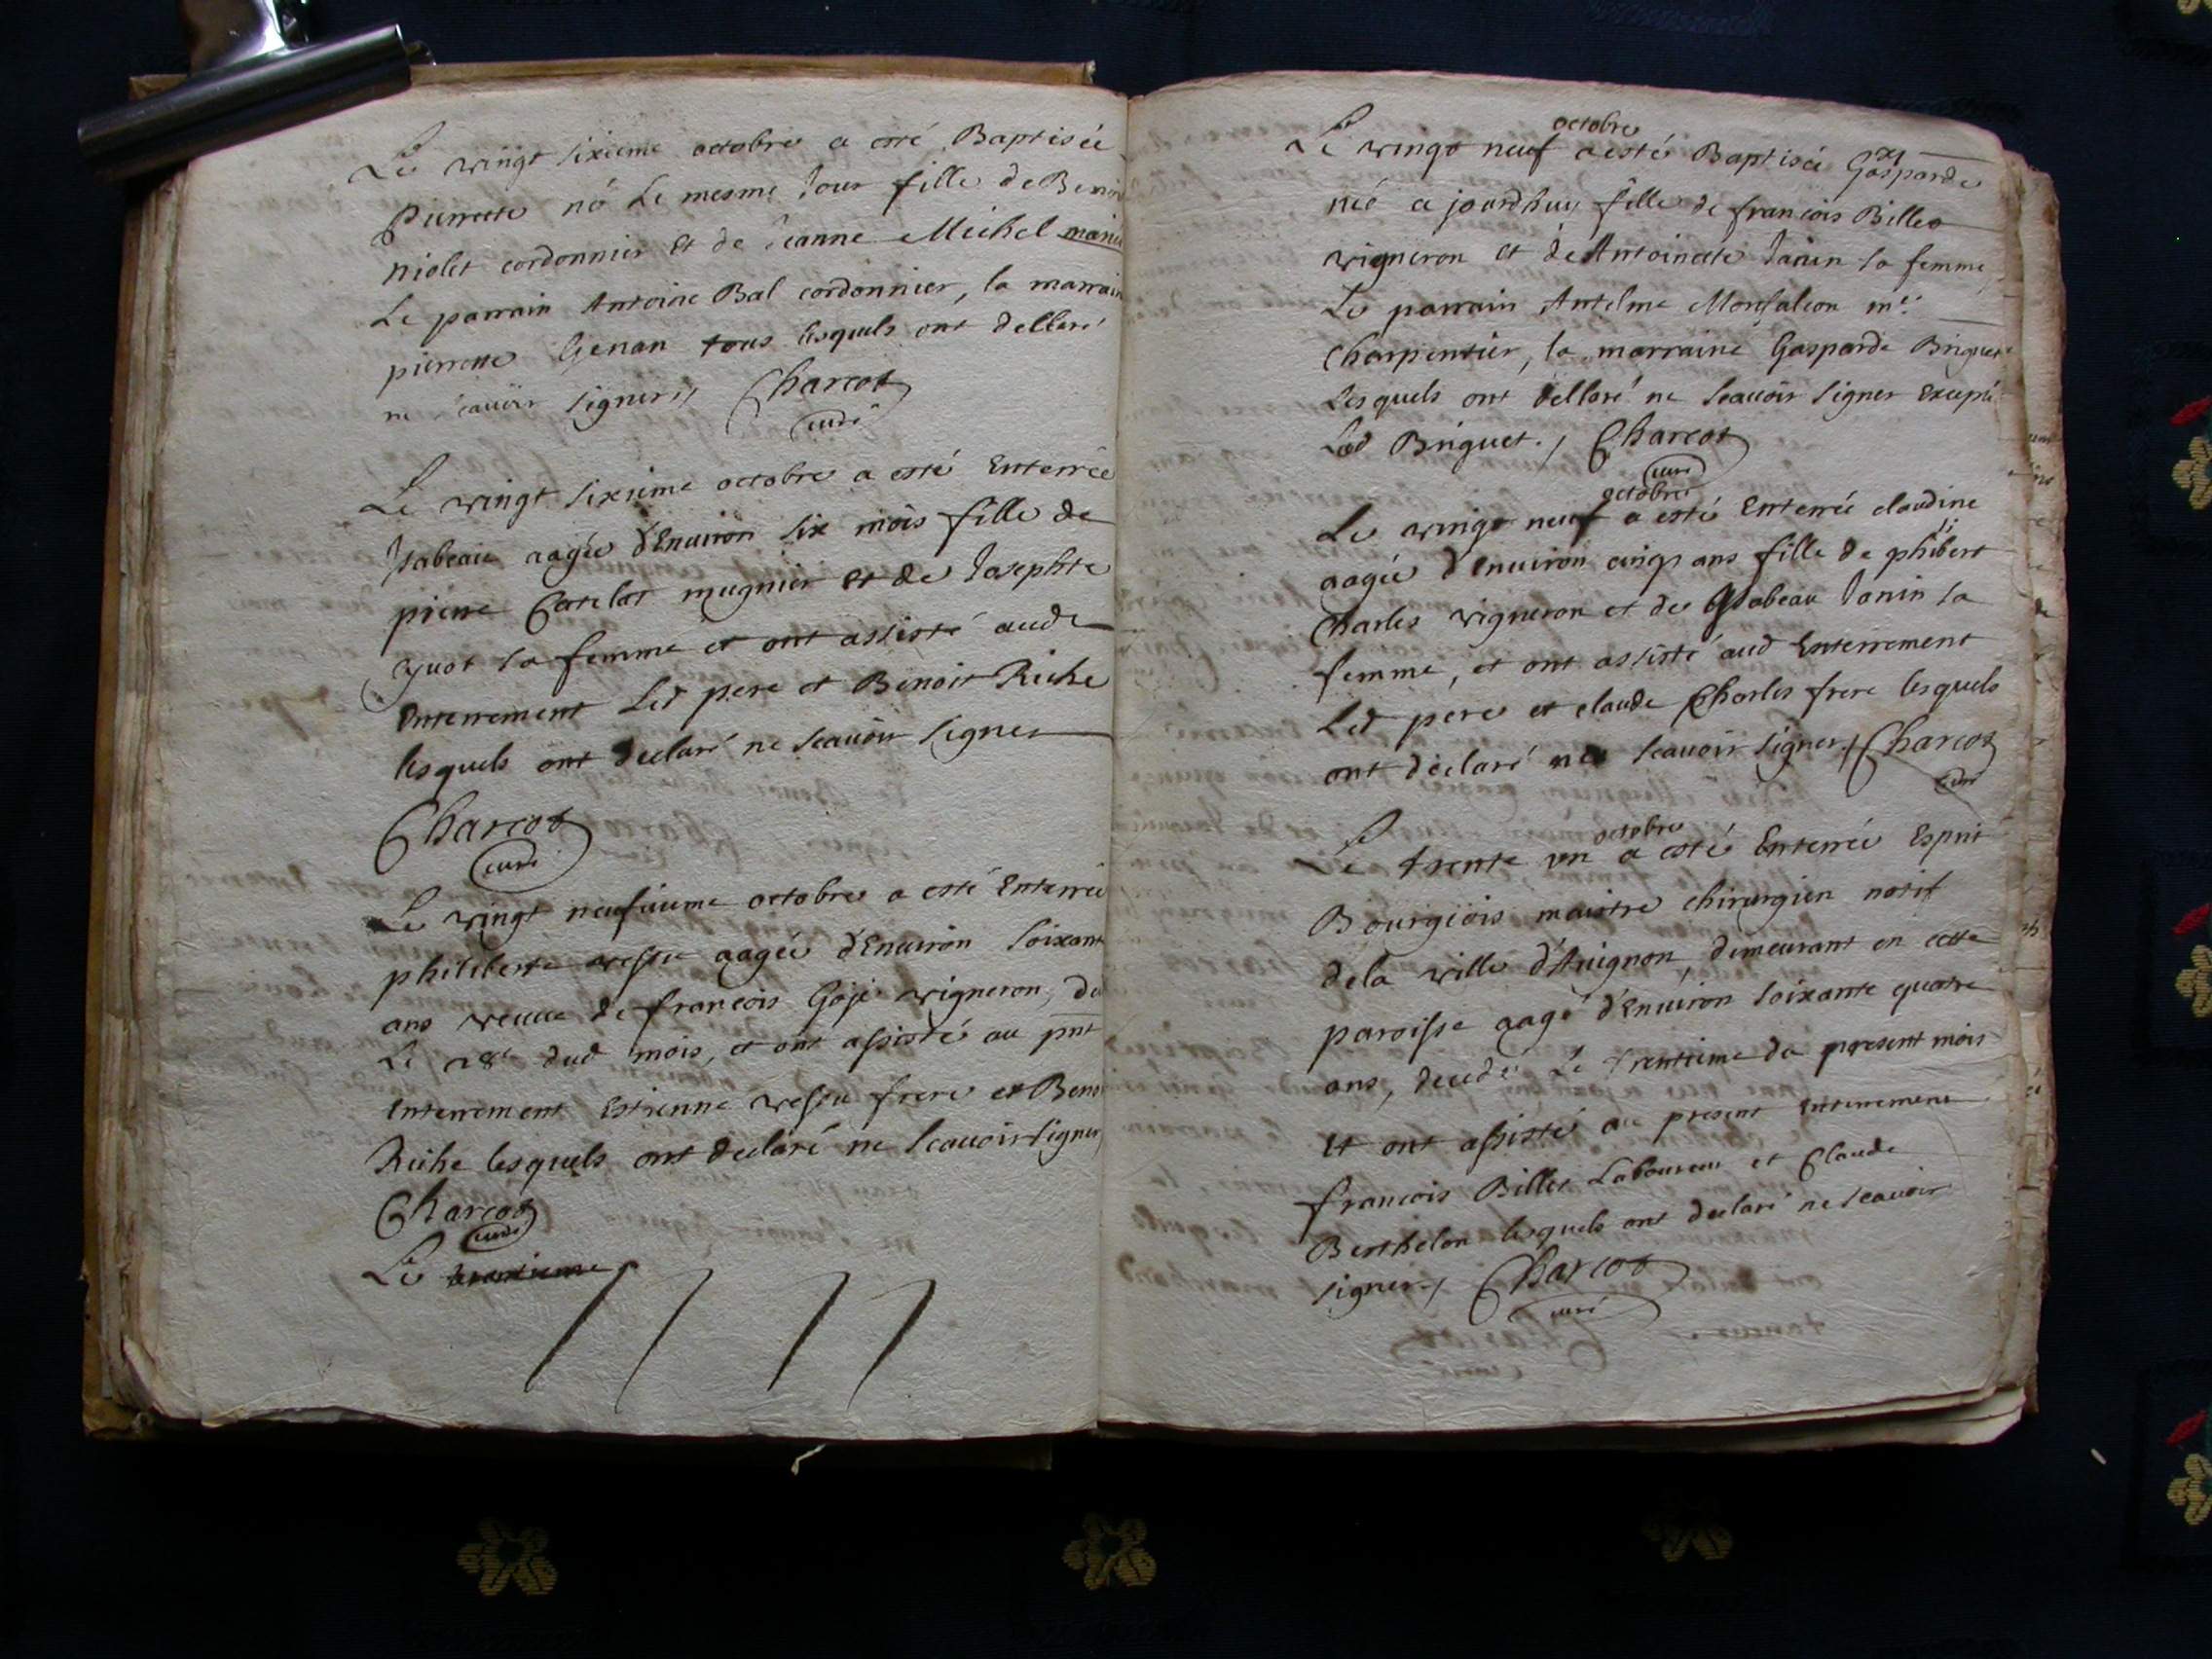 Le vingt sixieme octobre a esté Baptisée
Pierrette né Le mesme Jour fille de Benoi
niolet cordonnier Et de Jeanne Michel
Le parrain Antoine Bal cordonnier, la marrain
pierrette Genan tous lesquels ont dellaré
ne scauoir signer Charcot
curé
Le vingt sixieme octobre a esté Enterrée
Isabeau aagée d'Enuiron six mois fille de
pierre Catelat mugnier et de Josephte
yuot sa femme et ont assisté aud
Enterrement Led pere et Benoit Riche
lesquels ont declaré ne scauoir signer
Charcot
curé
Le vingt neufuieme octobre a esté Enterrée
philiberte aagée d'Enuiron soixant
ans veuue de francois Goje vigneron, de
Le 28e dud mois, et ont assisté au pnt
Enterrement Estienne frere et Beno
Riche lesquels ont declaré ne scauoir signer
Charcot
curé
Le
octobre
Le vingt neuf a esté Baptisée Gasparde
néé a jourdhuy fille de francois Billet
vigneron et de Antoinette Janin sa femme
Le parrain Antelme Monfalcon me
Charpentier, la marraine Gasparde Briguet
lesquels ont dellaré ne scauoir signer Excepté
Lad Briguet. Charcot
curé
octobre
Le vingt neuf a esté Enterrée claudine
aagée d'Enuiron cinq ans fille de phibert
Charles vigneron et de Isabeau Janin sa
femme, et ont assisté aud Enterrement
Led pere et claude Charles frere lesquels
ont declaré ne scauoir signer Charcot
curé
octobre
Le trente un a esté Enterrée Esprit
Bourgiois maistre chirurgien natif
dela ville d'Auignon, demeurant en cette
paroisse aagé d'Enuiron soixante quatre
ans, decedé Le trentieme du present mois
Et ont assisté au present Enterrement
francois Billet Laboureur et Claude
Berthelon lesquels ont declaré ne scauoir
signer Charcot
curé